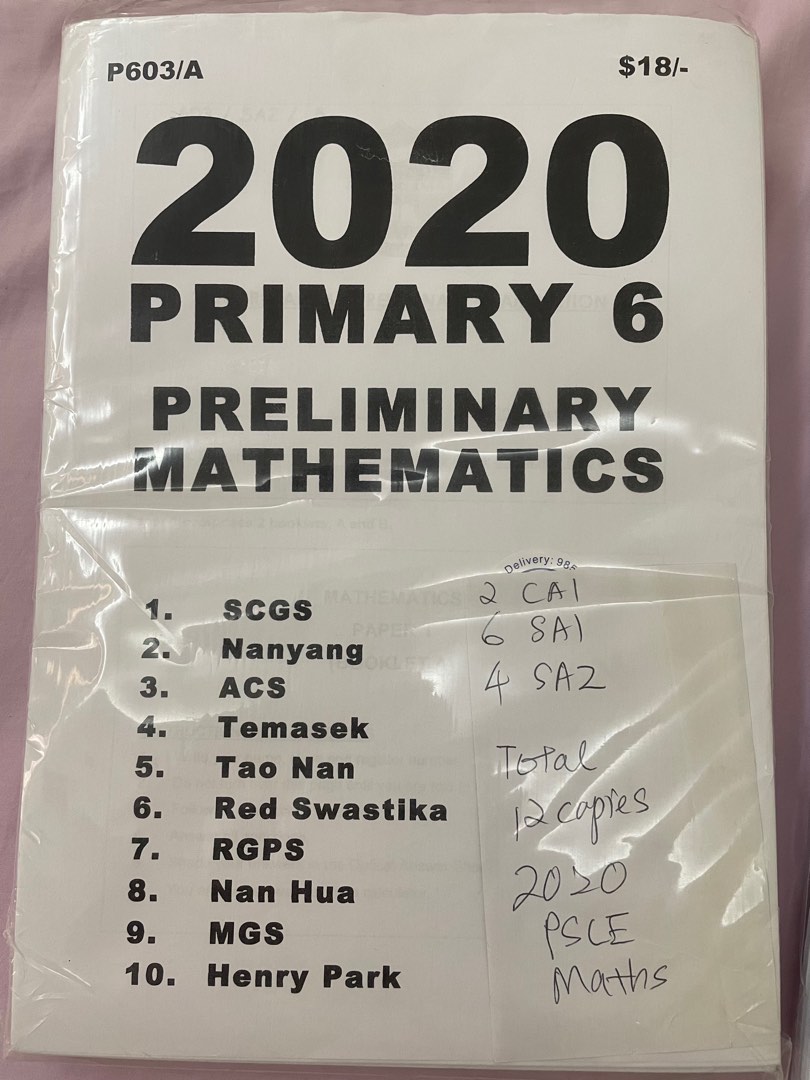 P603/A $18/-
2020
PRIMARY 6
PRELIMINARY
MATHEMATICS
1. SCGS
2. Nanyang
3. ACS
4. Temasek
5. Tao Nan
6. Red Swastika
7. RGPS
8. Nan Hua
9. MGS
10. Henry Park
Delivery:
2 CA1
6 SA1
4 SA2
Total
12 copies
2020
PSLE
Maths
MATHEMATICS
PAPER